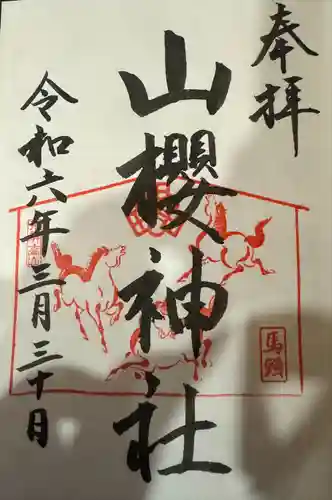 奉拝
山櫻神社
令和六八年三月三十日